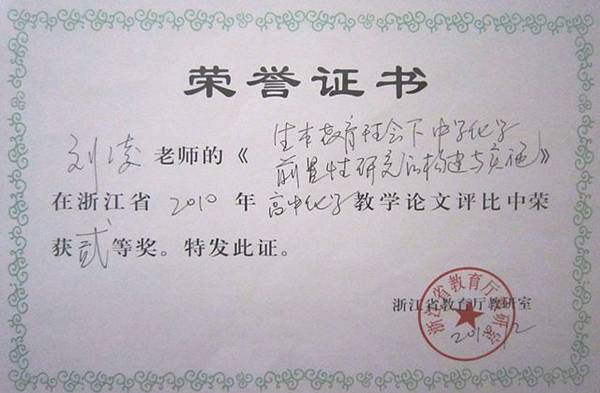 荣誉证书
刘凌 老师的《生本教育社会下中学化学
前置性研究的构建与实施》
在浙江省 2010 年 高中化学 教学论文评比中荣
获 贰 等奖。特发此证。
浙江省教育厅教研室
浙江省教育厅教研室